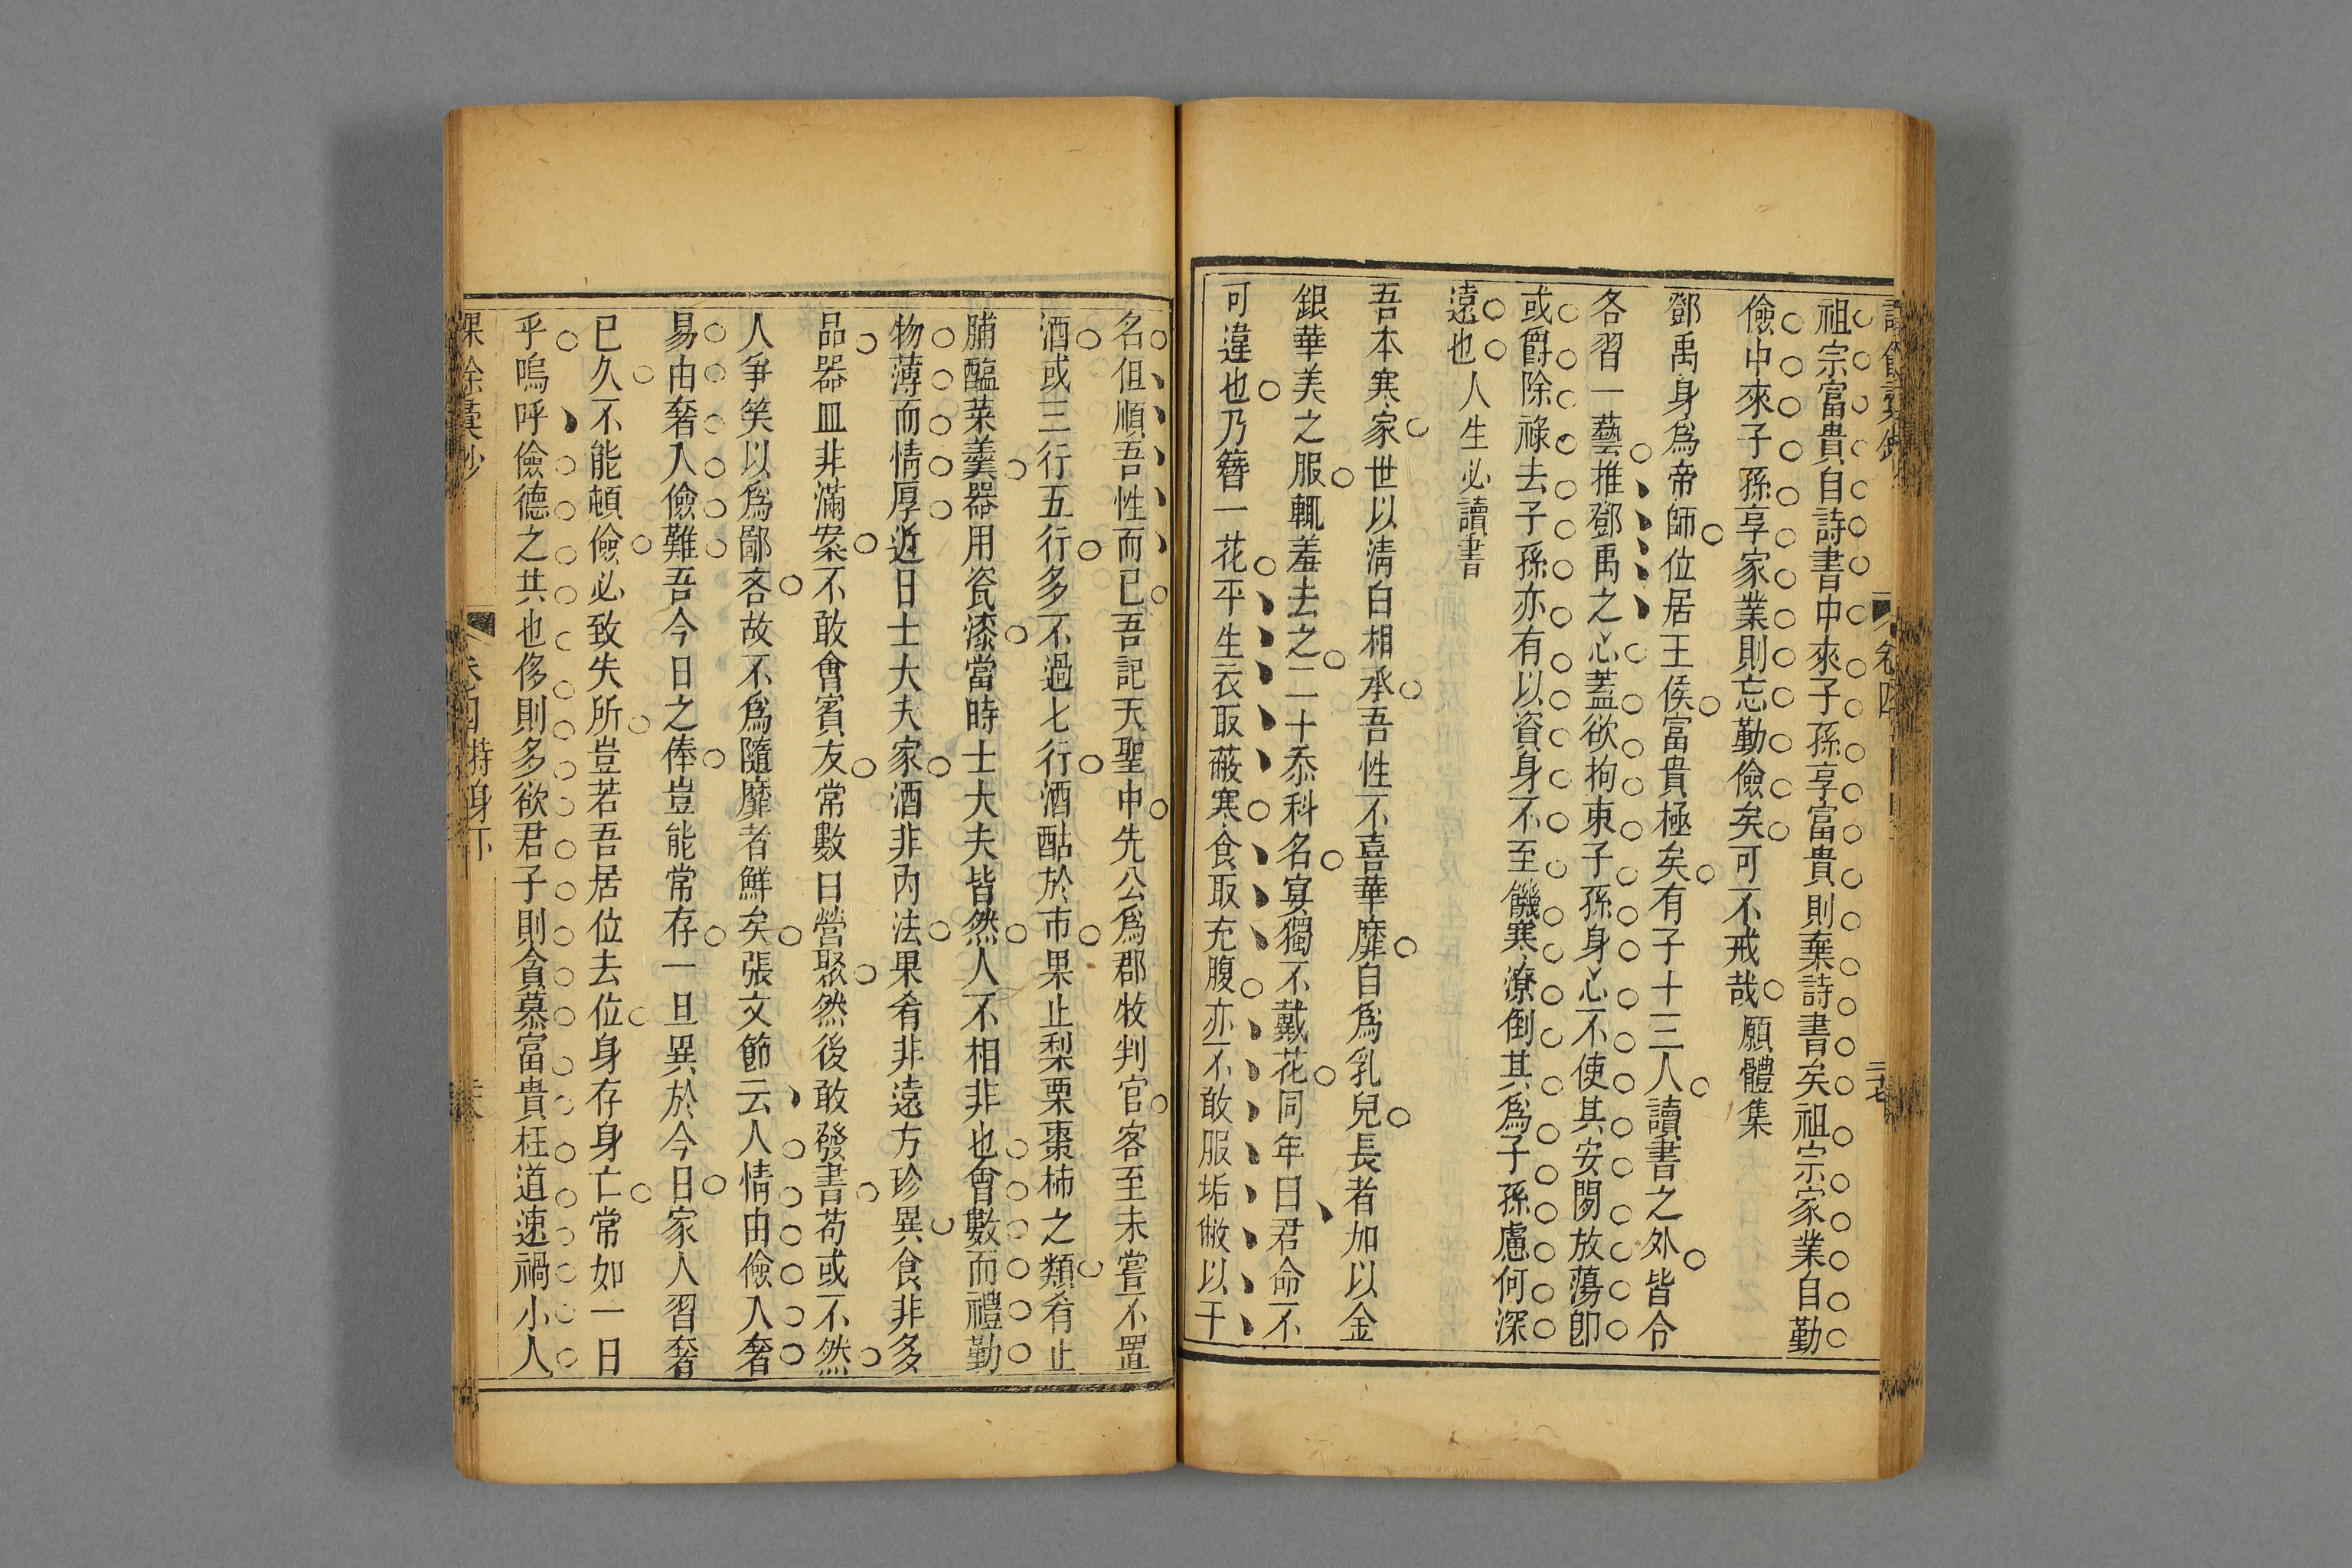 祖宗富貴自詩書中來子孫享富貴則棄詩書矣祖宗家業自勤
儉中來子孫享家業則忘勤儉矣可不戒哉願體集
鄧禹身爲帝師位居王侯富貴極矣有子十三人讀書之外皆令
各習一藝推鄧禹之心蓋欲拘束子孫身心不使其安閑放蕩卽
或爵除祿去子孫亦有以資身不至饑寒潦倒其爲子孫慮何深
遠也人生必讀書
吾本寒家世以淸白相承吾性不喜華靡自爲乳兒長者加以金
銀華美之服輒羞去之二十忝科名宴獨不戴花同年曰君命不
可違也乃簪一花平生衣取蔽寒食取充腹亦不敢服垢敝以干
名但順吾性而已吾記天聖中先公爲郡牧判官客至未嘗不置
酒或三行五行多不過七行酒酤於市果止梨栗棗柿之類肴止
脯醢菜羹器用瓷漆當時士大夫皆然人不相非也會數而禮勤
物薄而情厚近日士大夫家酒非內法果肴非遠方珍異食非多
品器皿非滿案不敢會賓友常數日營聚然後敢發書苟或不然
人爭笑以爲鄙吝故不爲隨靡者鮮矣張文節云人情由儉入奢
易由奢入儉難吾今日之俸豈能常存一旦異於今日家人習奢
已久不能頓儉必致失所豈若吾居位去位身存身亡常如一日
乎嗚呼儉德之共也侈則多欲君子則貪慕富貴枉道速禍小人
卷四 持身下